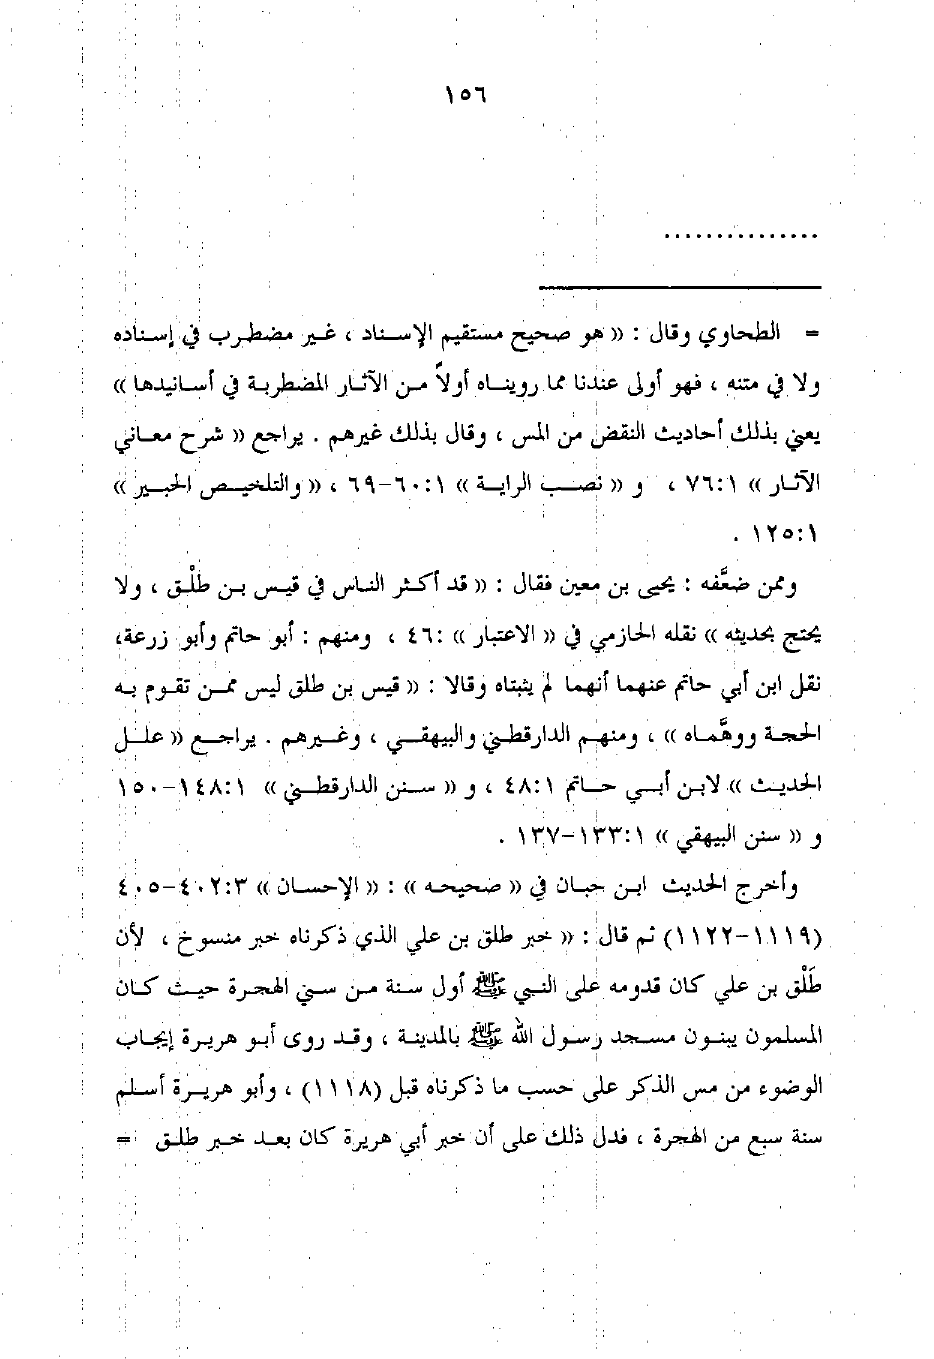 ١٥٦
...............
= الطحاوي وقال : « هو صحيح مستقيم الإسناد ، غير مضطرب في إسناده
ولا في متنه ، فهو أولى عندنا مما رويناه أولاً من الآثار المضطربة في أسانيدها »
يعني بذلك أحاديث النقض من المس ، وقال بذلك غيرهم . يراجع « شرح معاني
الآثار » ٧٦:١ ، و « نصب الراية » ٦٠:١-٦٩ ، « والتلخيص الحبير »
١٢٥:١ .
وممن ضعَّفه : يحيى بن معين فقال : « قد أكثر الناس في قيس بن طلْق ، ولا
يحتج بحديثه » نقله الحازمي في « الاعتبار » :٤٦ ، ومنهم : أبو حاتم وأبو زرعة،
نقل ابن أبي حاتم عنهما أنهما لم يثبتاه وقالا : « قيس بن طلق ليس ممن تقوم به
الحجة ووهَّماه » ، ومنهم الدارقطني والبيهقي ، وغيرهم . يراجع « علل
الحديث » لابن أبي حاتم ٤٨:١ ، و « سنن الدارقطني » ١٤٨:١-١٥٠
و « سنن البيهقي » ١٣٣:١-١٣٧ .
وأخرج الحديث ابن حبان في « صحيحه » : « الإحسان » ٤٠٢:٣-٤٠٥
(١١١٩-١١٢٢) ثم قال : « خبر طلق بن علي الذي ذكرناه خبر منسوخ ، لأن
طَلْق بن علي كان قدومه على النبي ﷺ أول سنة من سني الهجرة حيث كان
المسلمون يبنون مسجد رسول الله ﷺ بالمدينة ، وقد روى أبو هريرة إيجاب
الوضوء من مس الذكر على حسب ما ذكرناه قبل (١١١٨) ، وأبو هريرة أسلم
سنة سبع من الهجرة ، فدل ذلك على أن خبر أبي هريرة كان بعد خبر طلق =